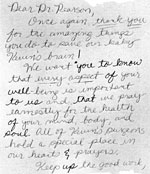 Dear Dr. Pearson,
Once again, thank you
for the amazing things
you do to save our baby
's brain!
We want you to know
that every aspect of your
well-being is important
to us and that we pray
earnestly for the health
of your mind, body, and
soul. All of 's surgeons
hold a special place in
our hearts & prayers.
Keep up the good work,